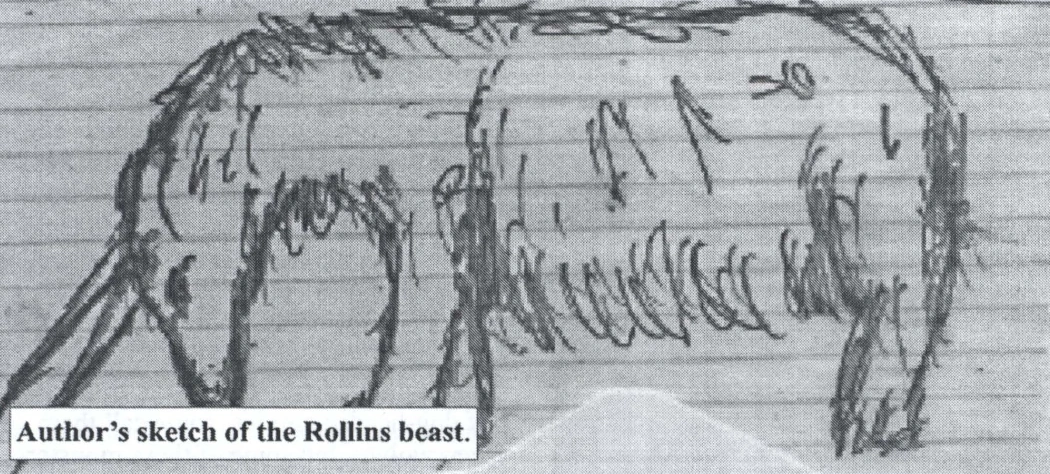 Author's sketch of the Rollins beast.